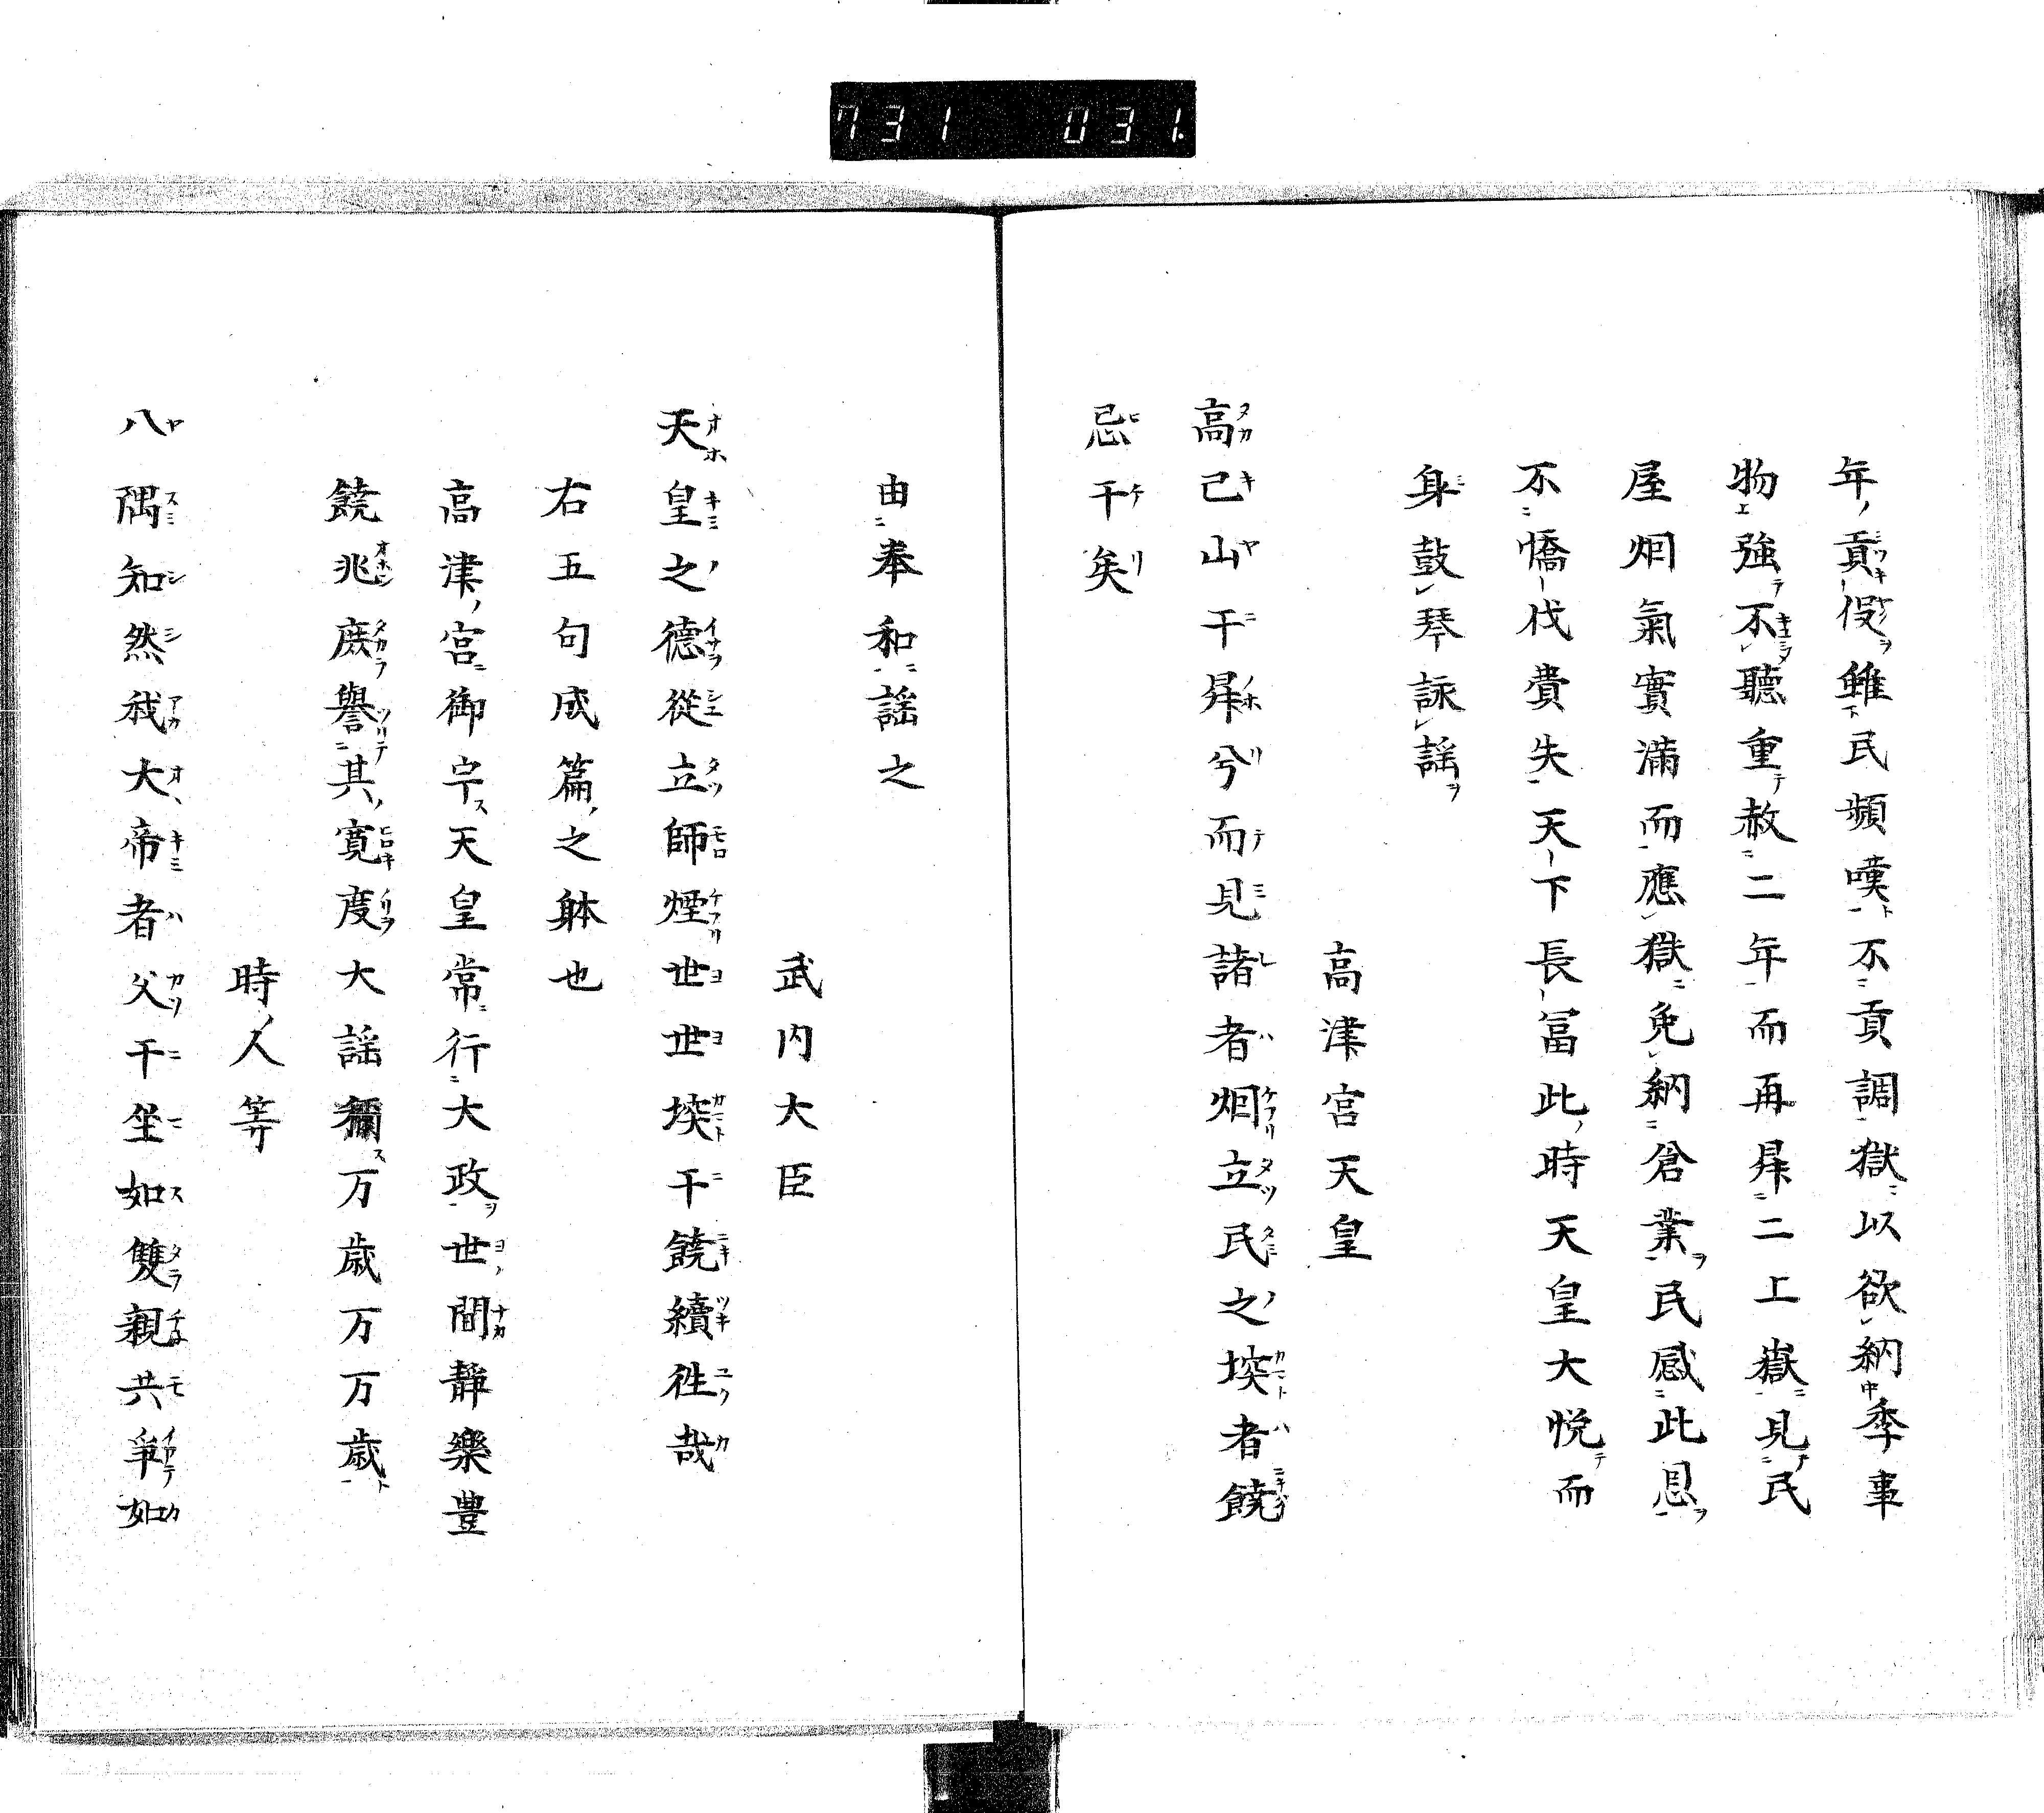 731 031.
年貢役雖民頻嘆不貢調獄以欲納季事
物強不聽重赦二年而再昇二上嶽見民
屋烟氣實滿而應獄免納倉業民感此恩
不憍伐貴失天下長冨此時天皇大悦而
身鼓琴詠謡
高津宮天皇
高己山干昇兮而見諸者烟立民之埃者饒
忌干矣
由奉和謡之
武内大臣
天皇之德從立師煙世世埃干饒續徃哉
右五句成篇之躰也
高津宮御宇天皇常行大政世間静樂豊
饒兆庶譽其寛度大謡稱万歳万万歳
時人等
八隅知然我大帝者父干坐如雙親共爭如